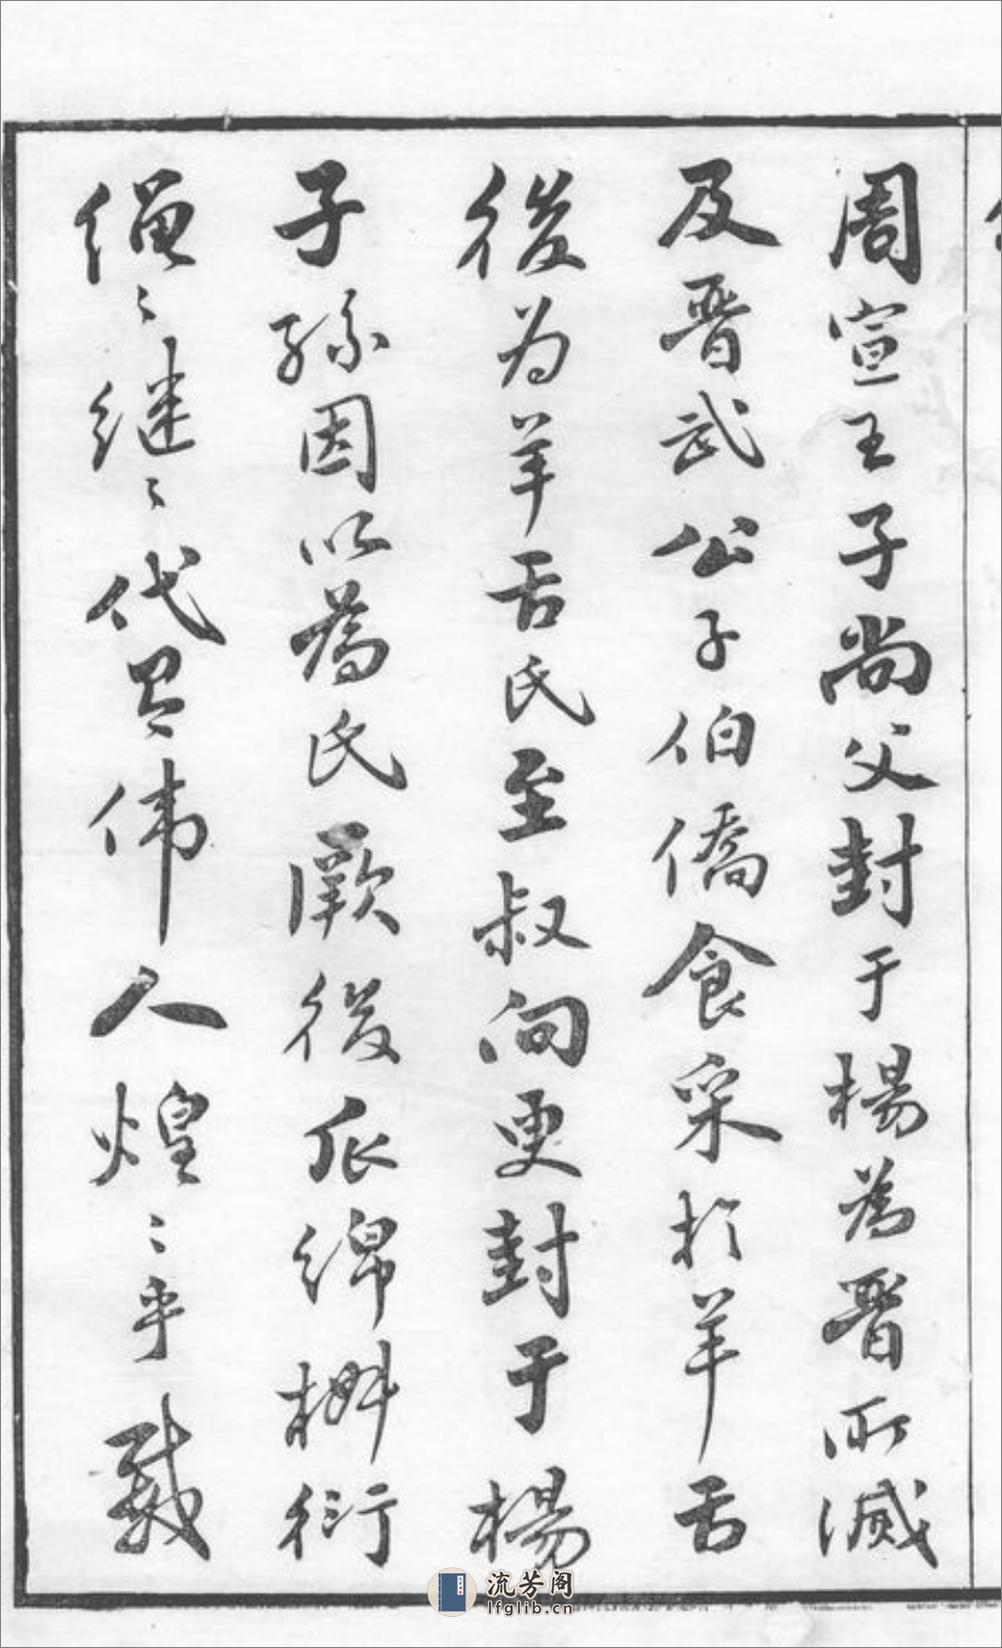 周宣王子尚父封于楊為晉所滅
及晉武公子伯僑食采於羊舌
後为羊舌氏至叔向更封于楊
子孫因以為氏厥後瓜綿椒衍
繩〻継〻代有偉人煌〻乎載
流芳阁
lfglib.cn